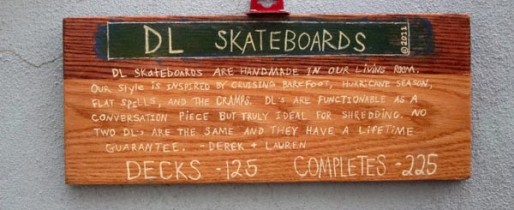 DL SKATEBOARDS ©2011
DL SKATEBOARDS ARE HANDMADE IN OUR LIVING ROOM.
OUR STYLE IS INSPIRED BY CRUISING BAREFOOT, HURRICANE SEASON,
FLAT SPELLS, AND THE CRAMPS. DL'S ARE FUNCTIONABLE AS A
CONVERSATION PIECE BUT TRULY IDEAL FOR SHREDDING. NO
TWO DL'S ARE THE SAME AND THEY HAVE A LIFETIME
GUARANTEE. -DEREK + LAUREN
DECKS -125 COMPLETES -225